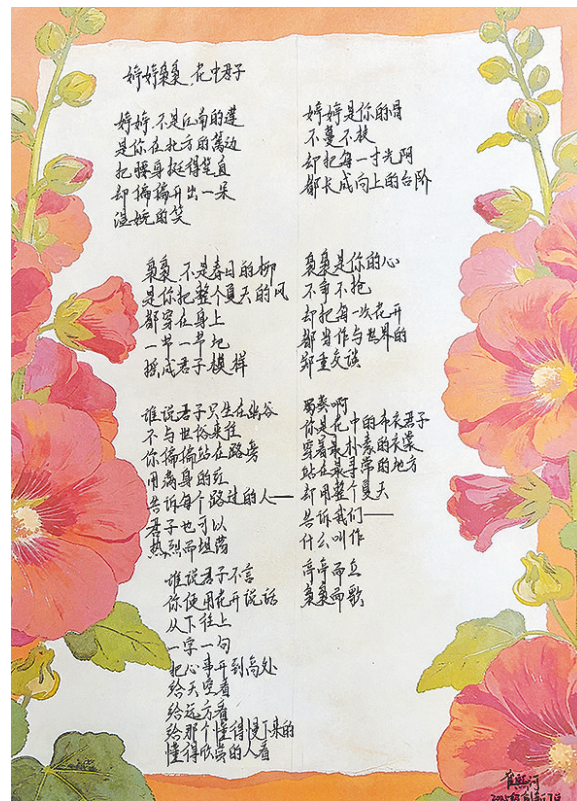 婷婷袅袅,花中君子
婷婷,不是江南的莲
是你在北方的篱边
把腰身挺得笔直
却偏偏开出一朵
温婉的笑
袅袅,不是春日的柳
是你把整个夏天的风
都穿在身上
一节一节地
摇成君子模样
谁说君子只生在幽谷
不与世俗来往
你偏偏站在路旁
用满身的红
告诉每个路过的人——
君子也可以
热烈而坦荡
谁说君子不言
你使用花开说话
从下往上
一字一句
把心事开到高处
给天空看
给远方看
给那个懂得慢下来的
懂得欣赏的人看
婷婷是你的骨
不蔓不枝
却把每一寸光阴
都长成向上的台阶
袅袅是你的心
不争不抢
却把每一次花开
都当作与世界的
郑重交谈
蜀葵啊
你是花中的布衣君子
穿着最朴素的衣裳
站在最寻常的地方
却用整个夏天
告诉我们——
什么叫作
亭亭而立
袅袅而歌